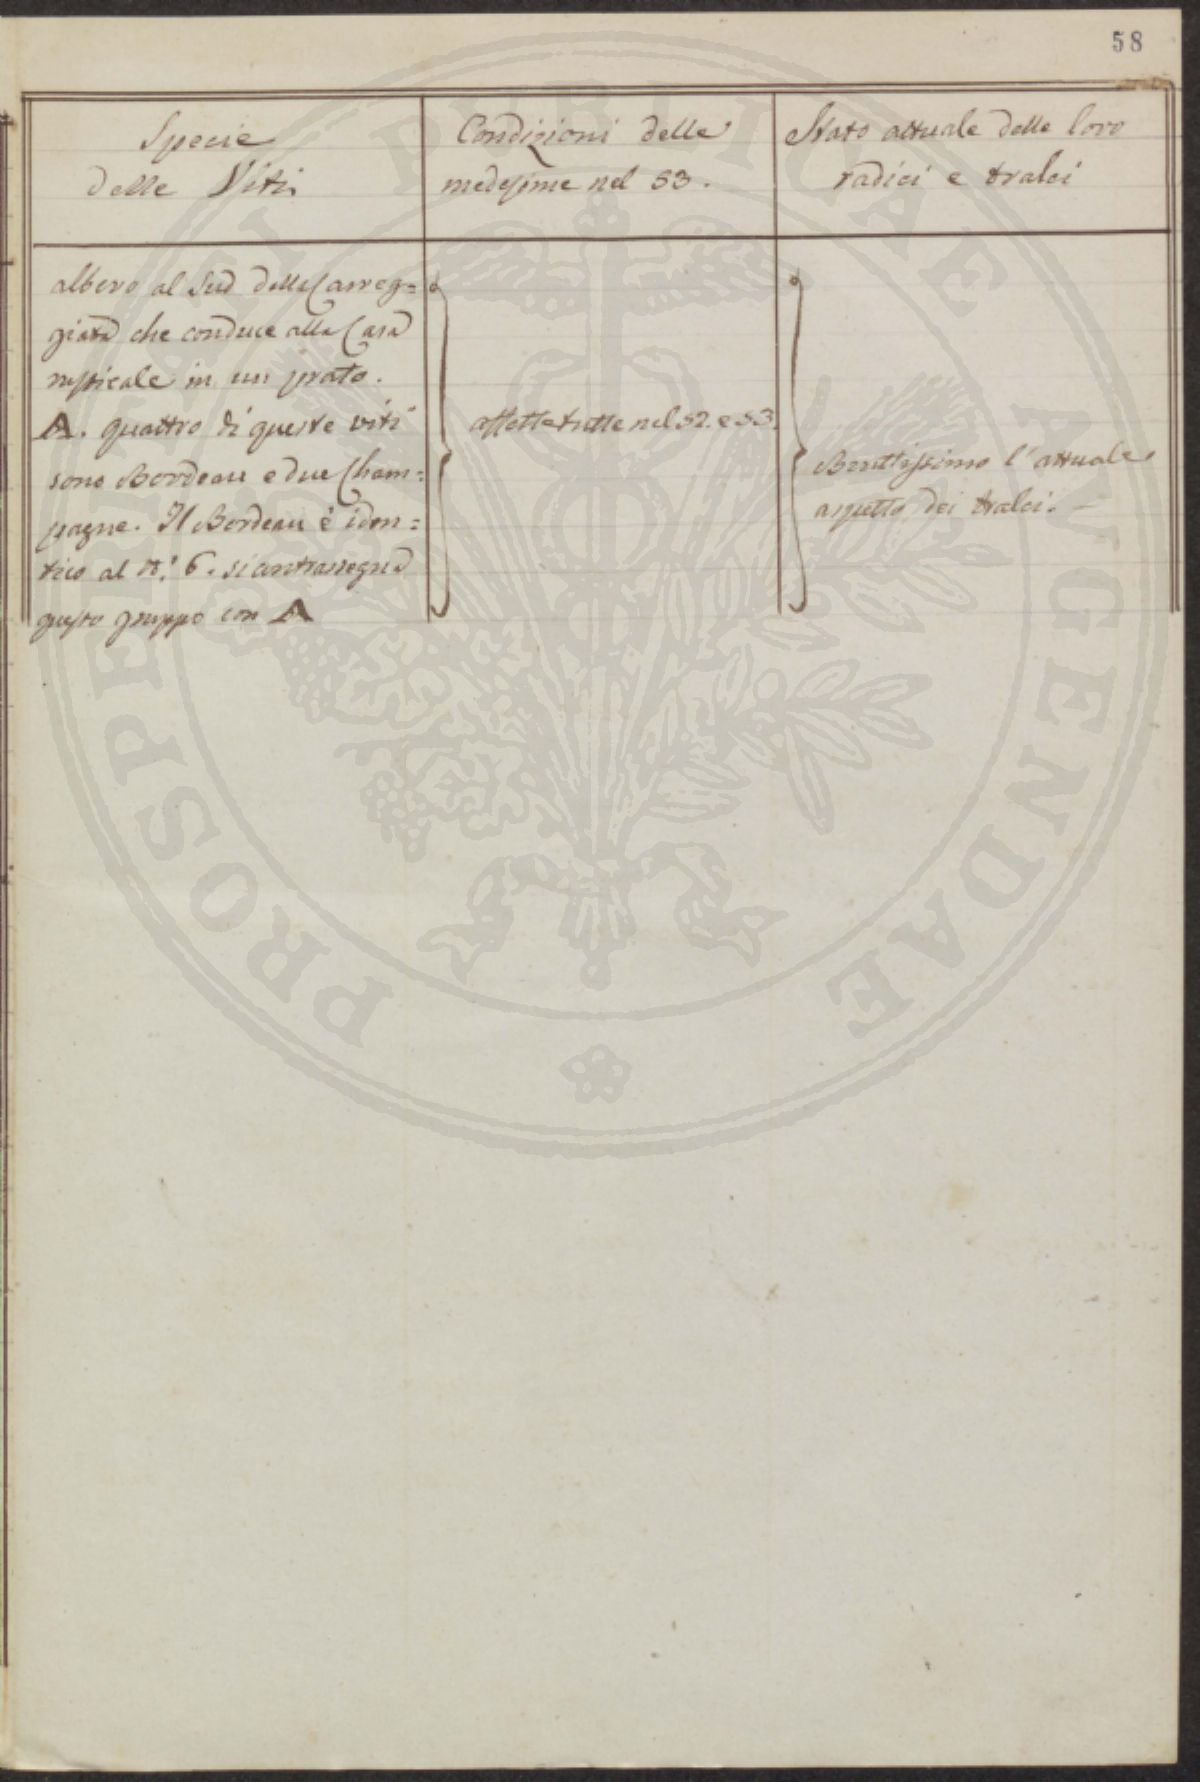 58
Specie
delle Viti
Condizioni delle
medesime nel 53.
Stato attuale delle loro
radici e tralci
albero al Sud della Carreg=
giata che conduce alla Casa
rusticale in un prato.
A. quattro di queste viti
sono Bordeau e due Cham=
pagne. Il Bordeau è iden=
tico al N.° 6. si contrassegna
questo gruppo con A
affette tutte nel 52. e 53.
Bruttissimo l'attuale
aspetto dei tralci. -
PROSPERITATI PUBLICAE AUGENDAE